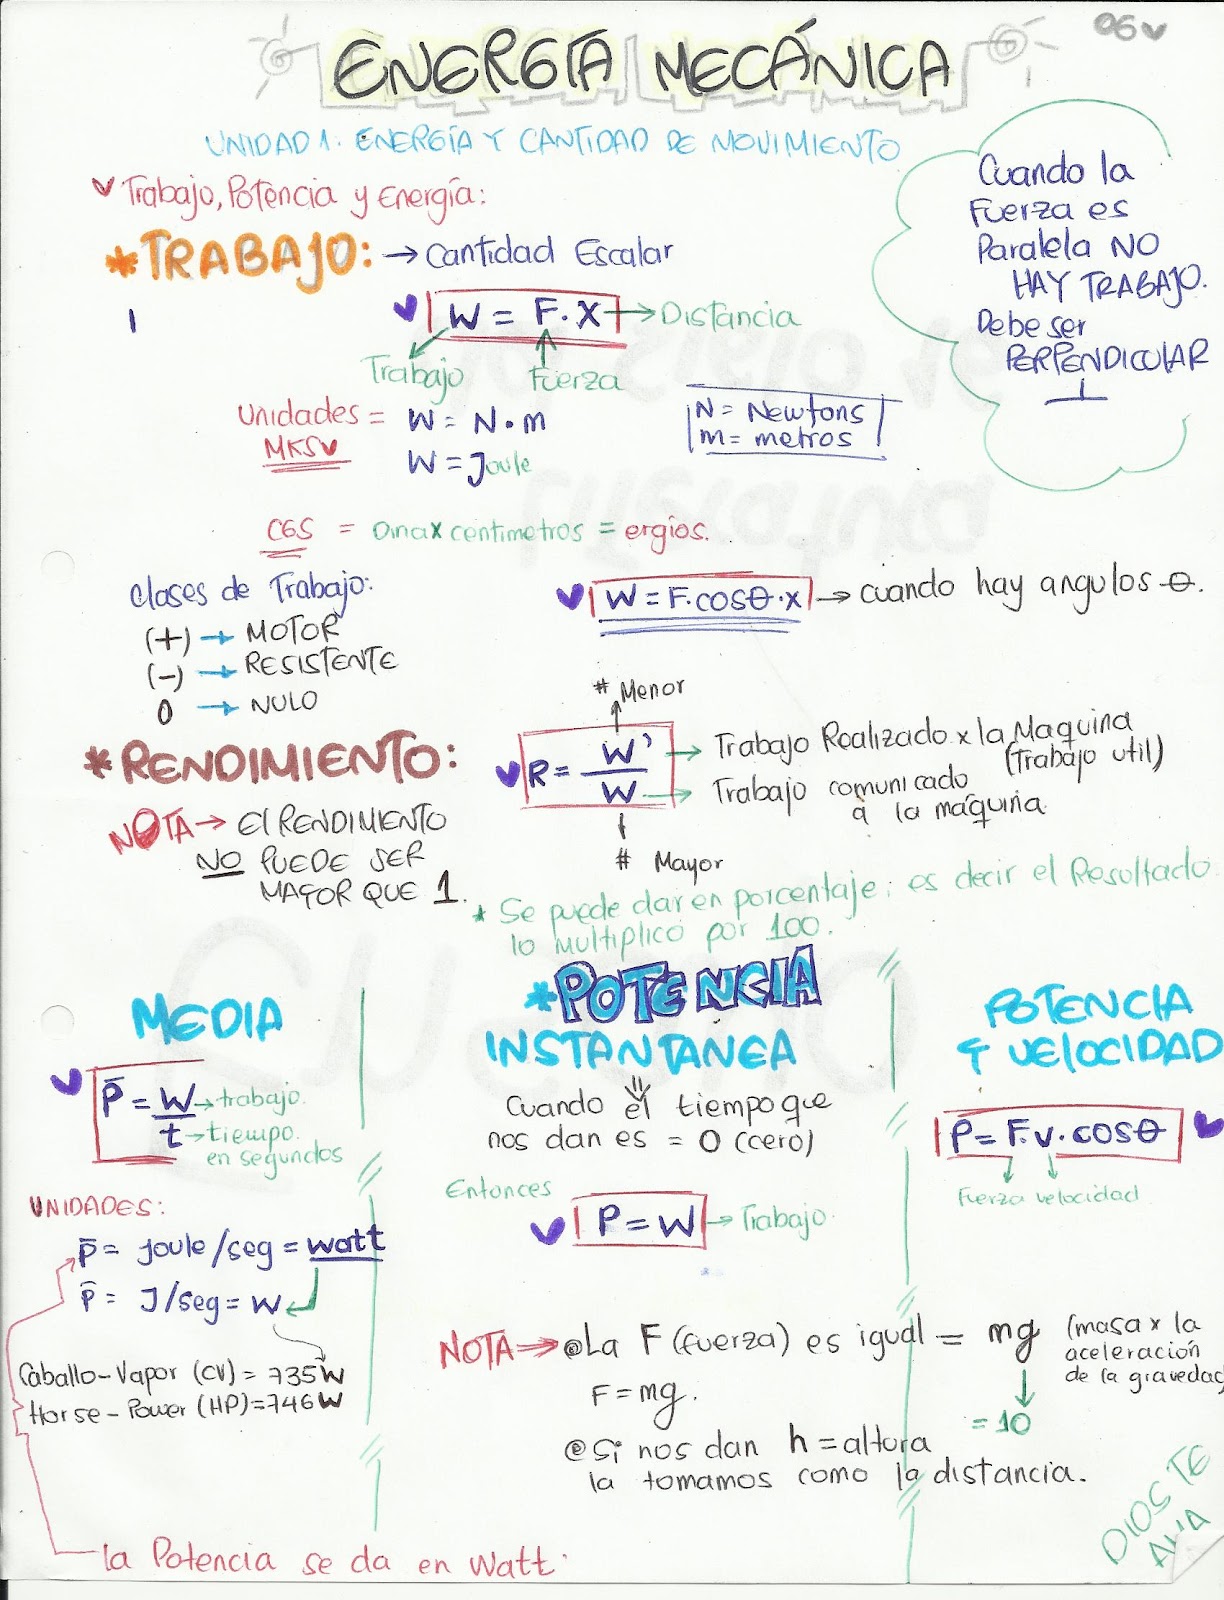 06
ENERGÍA MECÁNICA
UNIDAD 1: ENERGÍA Y CANTIDAD DE MOVIMIENTO
Trabajo, Potencia y Energía:
Cuando la
Fuerza es
Paralela NO
HAY TRABAJO.
Debe ser
PERPENDICULAR
⊥
*TRABAJO: → Cantidad Escalar
W = F. X → Distancia
Trabajo Fuerza
Unidades = W = N . m
MKS W = Joule
N = Newtons
m = metros
CGS = Dina x centimetros = ergios.
Clases de Trabajo:
(+) → MOTOR
(-) → RESISTENTE
0 → NULO
W = F. cosθ . x → cuando hay angulos θ.
*RENDIMIENTO:
NOTA → El RENDIMIENTO
NO PUEDE SER
MAYOR QUE 1.
# Menor
R = W' / W
→ Trabajo Realizado x la Maquina
(Trabajo util)
→ Trabajo comunicado
a la máquina
# Mayor
* Se puede dar en porcentaje; es decir el Resultado
lo multiplico por 100.
*POTENCIA
MEDIA
P̄ = W → trabajo.
t → tiempo.
en segundos
UNIDADES:
P̄ = joule/seg = watt
P̄ = J/seg = W
Caballo-Vapor (CV) = 735W
Horse-Power (HP) = 746W
la Potencia se da en Watt.
INSTANTANEA
Cuando el tiempo que
nos dan es = 0 (cero)
Entonces
P = W → Trabajo
POTENCIA
Y VELOCIDAD
P = F. v . cosθ
Fuerza velocidad
NOTA → La F (fuerza) es igual = mg (masa x la
aceleración
de la gravedad
F = mg.
= 10
Si nos dan h = altura
la tomamos como la distancia.
DIOS TE
AMA